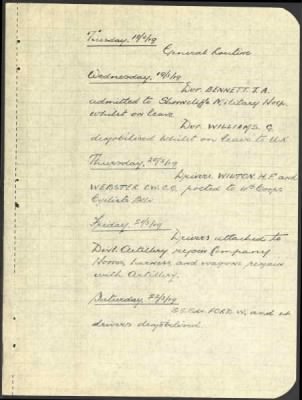 Tuesday, 18/2/19
General Routine
Wednesday, 19/2/19
Dvr. BENNETT. J. A.
admitted to Shorncliffe Military Hosp.
whilst on leave
Dvr. WILLIAMS. G.
demobilised whilst on leave to U.K
Thursday, 20/2/19
Driver WINTON. H. F. and
WEBSTER C.W.C.C. posted to Corps
Cyclists Bln.
Friday, 21/2/19
Drivers attached to
Divl. Artillery rejoin Company
Horses, harness and wagons remain
with Artillery.
Saturday, 22/2/19
FORD. W. and
drivers demobilised.